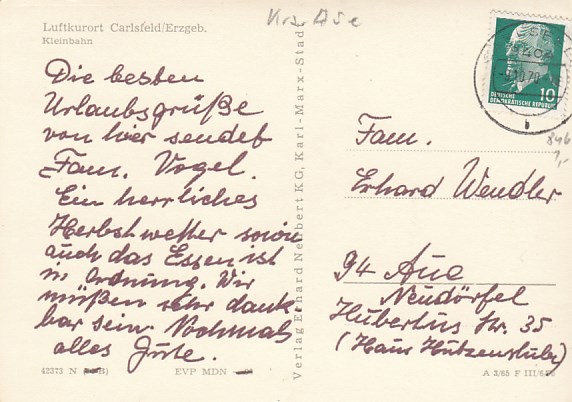 Luftkurort Carlsfeld/Erzgeb.
Kleinbahn
Die besten
Urlaubsgrüße
von hier sendet
Fam. Vogel.
Ein herrliches
Herbstwetter sowie
auch das Essen ist
in Ordnung. Wir
müßen sehr dank-
bar sein. Nochmals
alles Gute.
42373 N
EVP MDN
Verlag Erhard Neubert KG, Karl-Marx-Stadt
DEUTSCHE
DEMOKRATISCHE REPUBLIK
10
Fam.
Erhard Wendler
94 Aue
Neudörfel
Hubertus Str. 35
(Haus Hutzenstube)
A 3/65 F III/6/